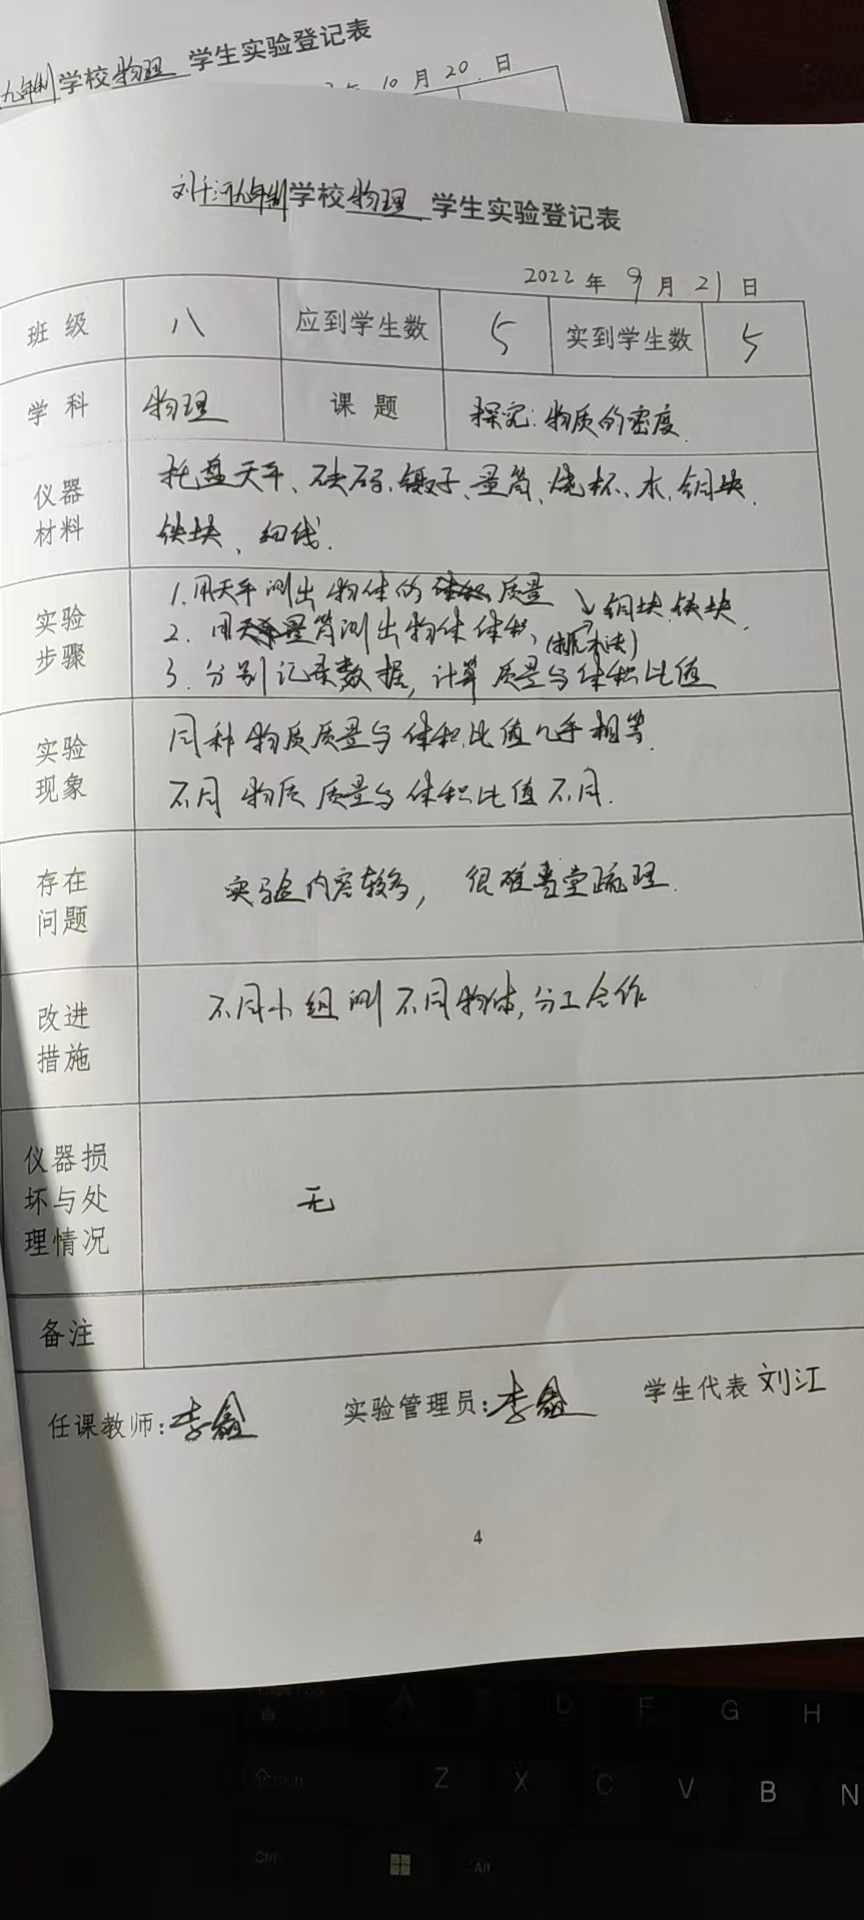 九年制学校物理 学生实验登记表
年 10月20日
刘千河九年制学校物理 学生实验登记表
2022年9月21日
班级 八 应到学生数 5 实到学生数 5
学科 物理 课题 探究:物质的密度.
仪器材料
托盘天平、砝码、镊子、量筒、烧杯、水、铜块、
铁块、细线.
实验步骤
1.用天平测出物体的质量 → 铜块、铁块.
2.用量筒测出物体体积、(排水法)
3.分别记录数据,计算质量与体积比值
实验现象
同种物质质量与体积比值几乎相等.
不同物质质量与体积比值不同.
存在问题
实验内容较多,很难当堂梳理.
改进措施
不同小组测不同物体,分工合作
仪器损坏与处理情况
无
备注
任课教师:李鑫 实验管理员:李鑫 学生代表 刘江
4
A D F G H
Z X C V B N
Ctrl Alt